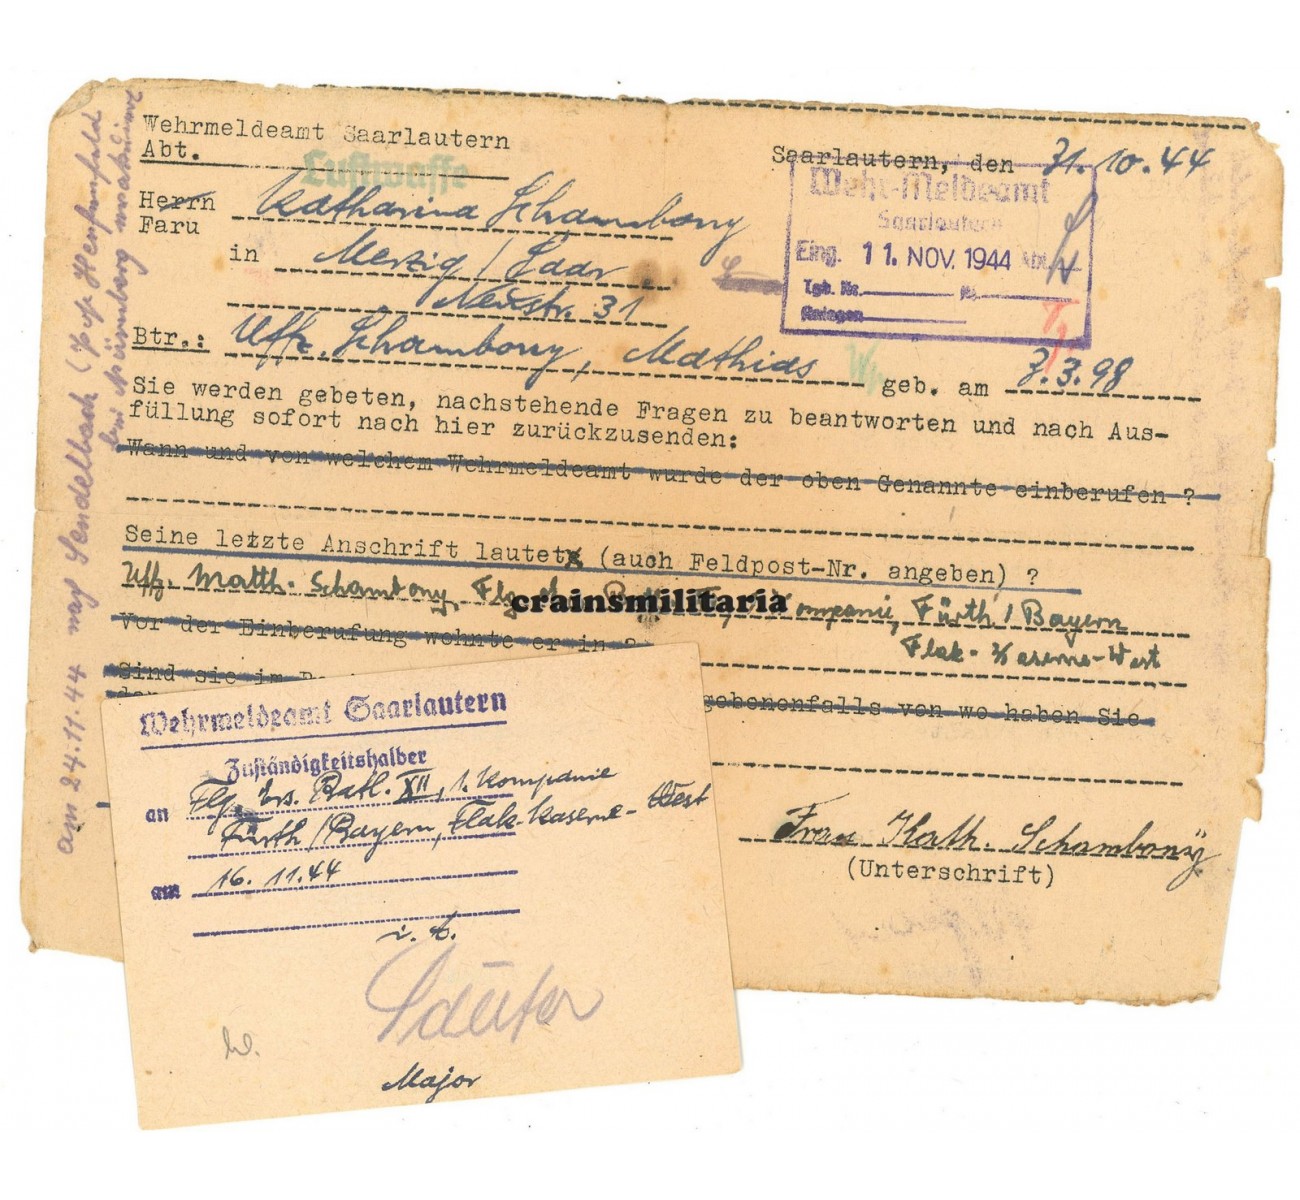 Wehrmeldeamt Saarlautern
Abt.
Luftwaffe
Saarlautern, den 31.10.44
Herrn
Farau
Katharina Schambony
in Merzig / Saar
31
Wehr-Meldeamt
Saarlautern
Eing. 11. NOV. 1944
Tgb. Nr.
Anlagen
Btr.: Uffz. Schambony, Mathias geb. am 7.3.98
Sie werden gebeten, nachstehende Fragen zu beantworten und nach Aus-
füllung sofort nach hier zurückzusenden:
Wann und von welchem Wehrmeldeamt wurde der oben Genannte einberufen ?
Seine letzte Anschrift lautet (auch Feldpost-Nr. angeben) ?
Uffz. Matth. Schambony, Kompanie, Fürth / Bayern
Flak-Kaserne-West
crainsmilitaria
Vor der Einberufung wohnte er in ?
Sind sie im
gebenenfalls von wo haben Sie
Frau Kath. Schambony
(Unterschrift)
am 24.11.44 nach Sendelbach
bei Nürnberg
Wehrmeldeamt Saarlautern
Zuständigkeitshalber
an Flg. Ers. Batl. XII, 1. Kompanie
Fürth / Bayern, Flak-Kaserne-West
am 16.11.44
Sauter
Major